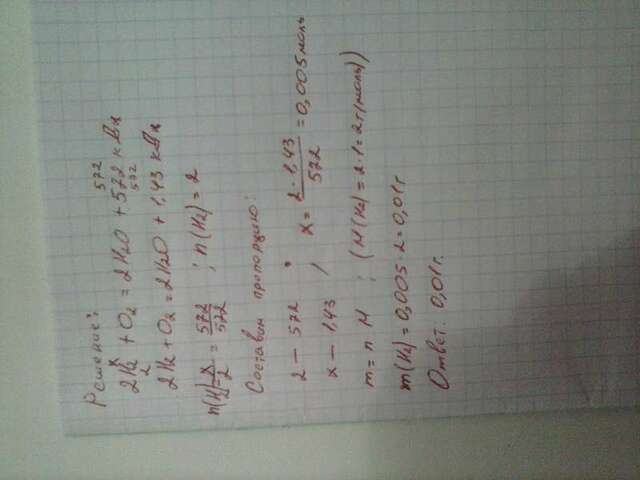 Решение:
x 572
2H2 + O2 = 2H2O + 572 кДж
2 572
2H2 + O2 = 2H2O + 1,43 кДж
n(H2) x/2 = 572/572 ; n(H2) = 2
Составим пропорцию:
2 — 572 ; x = 2·1,43/572 = 0,005 моль
x — 1,43 /
m = n M ; (M(H2) = 2·1 = 2 г/моль))
m(H2) = 0,005·2 = 0,01 г
Ответ: 0,01 г.